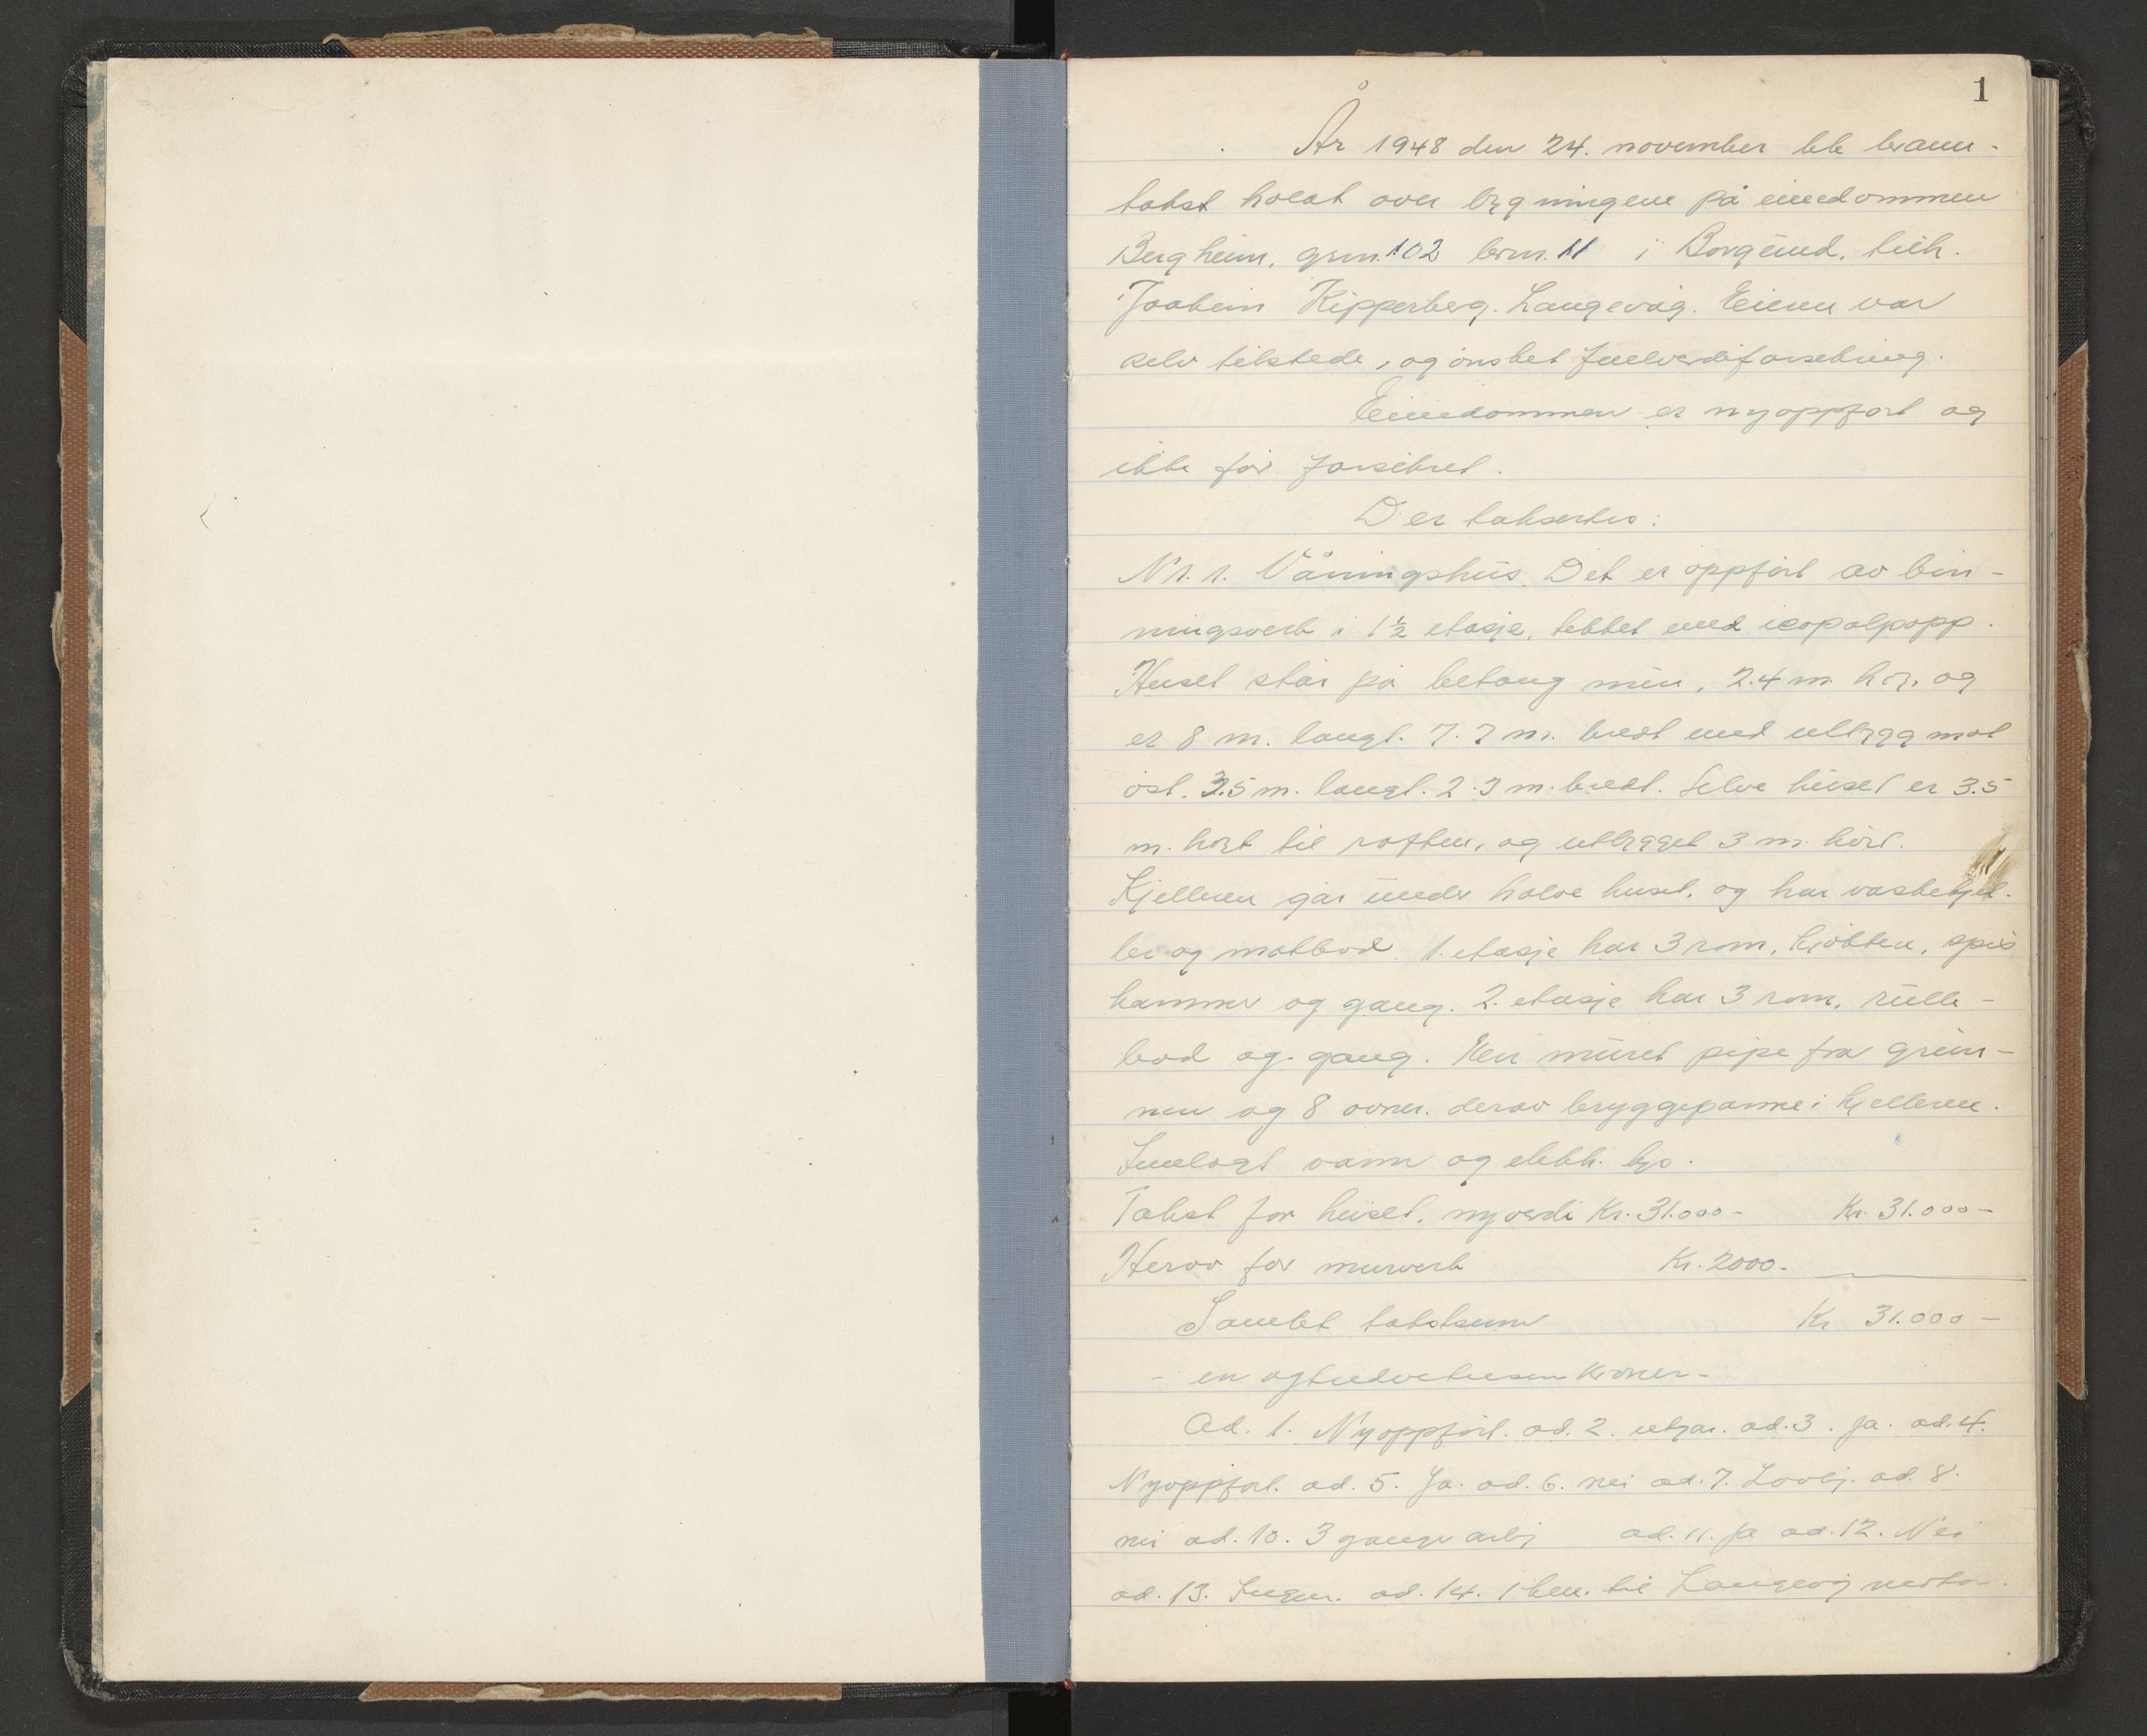 1
År 1948 den 24. november ble brann-
takst holdt over bygningene på eiendommen
Bergheim, grn. 102 brn. 11 i Borgund, tilh.
Joakim Kipperberg. Langevåg. Eieren var
selv tilstede, og ønsket fullverdiforsikring.
Eiendommen er nyoppført og
ikke før forsikret.
Der taksertes:
Nr. 1. Våningshus. Det er oppført av bin-
ningsverk i 1½ etasje, tekket med icopalpapp.
Huset står på betong mur, 2.4 m. høy, og
er 8 m. langt. 7.7 m. bredt med utbygg mot
øst. 3.5 m. langt. 2.3 m. bredt. Selve huset er 3.5
m. høyt til raften, og utbygget 3 m. høyt.
Kjelleren går under halve huset, og har vaskekjel-
ler og matbod. 1. etasje har 3 rom, kjøkken, spis
kammer og gang. 2. etasje har 3 rom, rulle-
bod og gang. Een muret pipe fra grun-
nen og 8 ovner. derav bryggepanne i kjelleren.
Innlagt vann og elektr. lys.
Takst for huset, nyverdi Kr. 31.000- Kr. 31.000-
Herav for murverk Kr. 2000.-
Samlet takstsum Kr 31.000-
- en ogtredvetusen kroner-
Ad. 1. Nyoppført. ad. 2. utgår. ad. 3. Ja. ad. 4.
Nyoppført. ad. 5. Ja. ad. 6. nei ad. 7. Lovlj. ad. 8.
nei ad. 10. 3 ganger årlj ad. 11. Ja ad. 12. Nei
ad. 13. Ingen. ad. 14. 1 km. til Langevåg